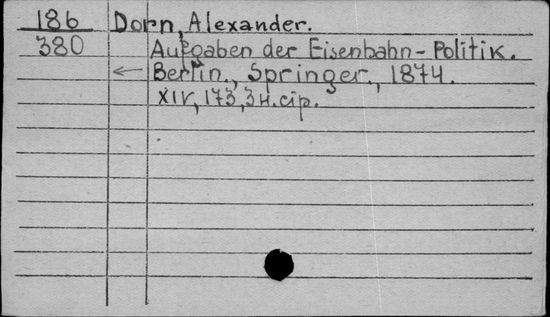 186 Dorn, Alexander.
380 Aufgaben der Eisenbahn-Politik.
← Berlin., Springer., 1874.
XIV, 173, 3 н. стр.